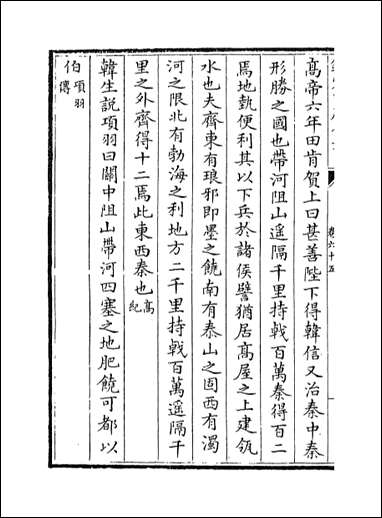 高帝六年田肯賀上曰甚善陛下得韓信又治秦中秦
形勝之國也帶河阻山遥隔千里持戟百萬秦得百二
焉地埶便利其以下兵於諸侯譬猶居高屋之上建瓴
水也夫齊東有琅邪即墨之饒南有泰山之固西有濁
河之限北有勃海之利地方二千里持戟百萬遥隔千
里之外齊得十二焉此東西秦也高紀
韓生說項羽曰關中阻山帶河四塞之地肥饒可都以
伯項羽傳
卷六十五